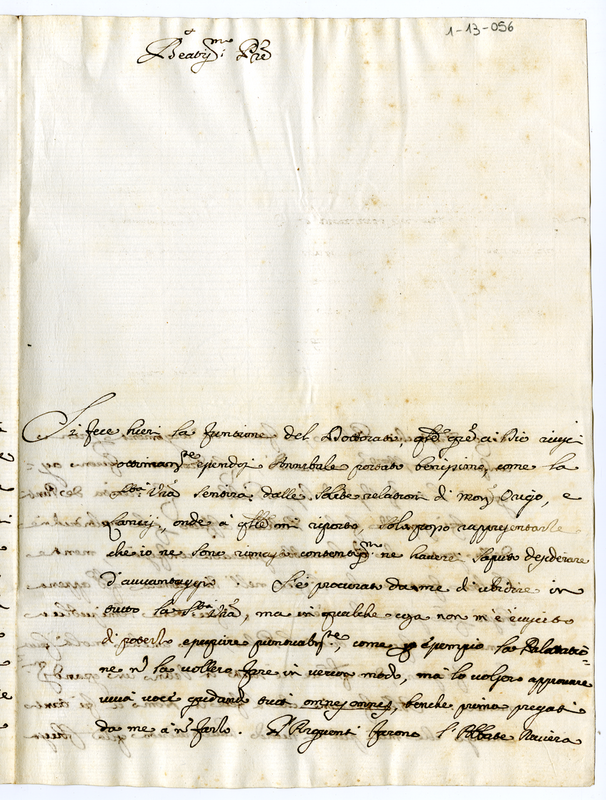 1-13-056
Beat.mo Pre
Si fece hieri la funtione del Dottorato, q.le gra. a Dio riuscì
ottimam.te essendosi Annibale portato benissimo, come la
S.tà V.ra sentirà dalle solite relationi di Mons. Origo, e
onde à q.lle mi riporto. Solo posso rappresentarle
che io ne sono rimasto contentiss.mo ne haverei saputo desiderare
d'avvantaggio. S'è procurato da me di ubidire in
tutto la S.tà V.ra, ma in qualche cosa non m'è riuscito
di poterlo eseguire puntualm.te, come per esempio la Balottatio=
ne n. la vollero fare in verun modo, mà lo volsero approvare
viva voce gridando tutti omnes omnes, benche prima pregati
da me à n. farlo. Arguenti furono l'Abbate Riviera